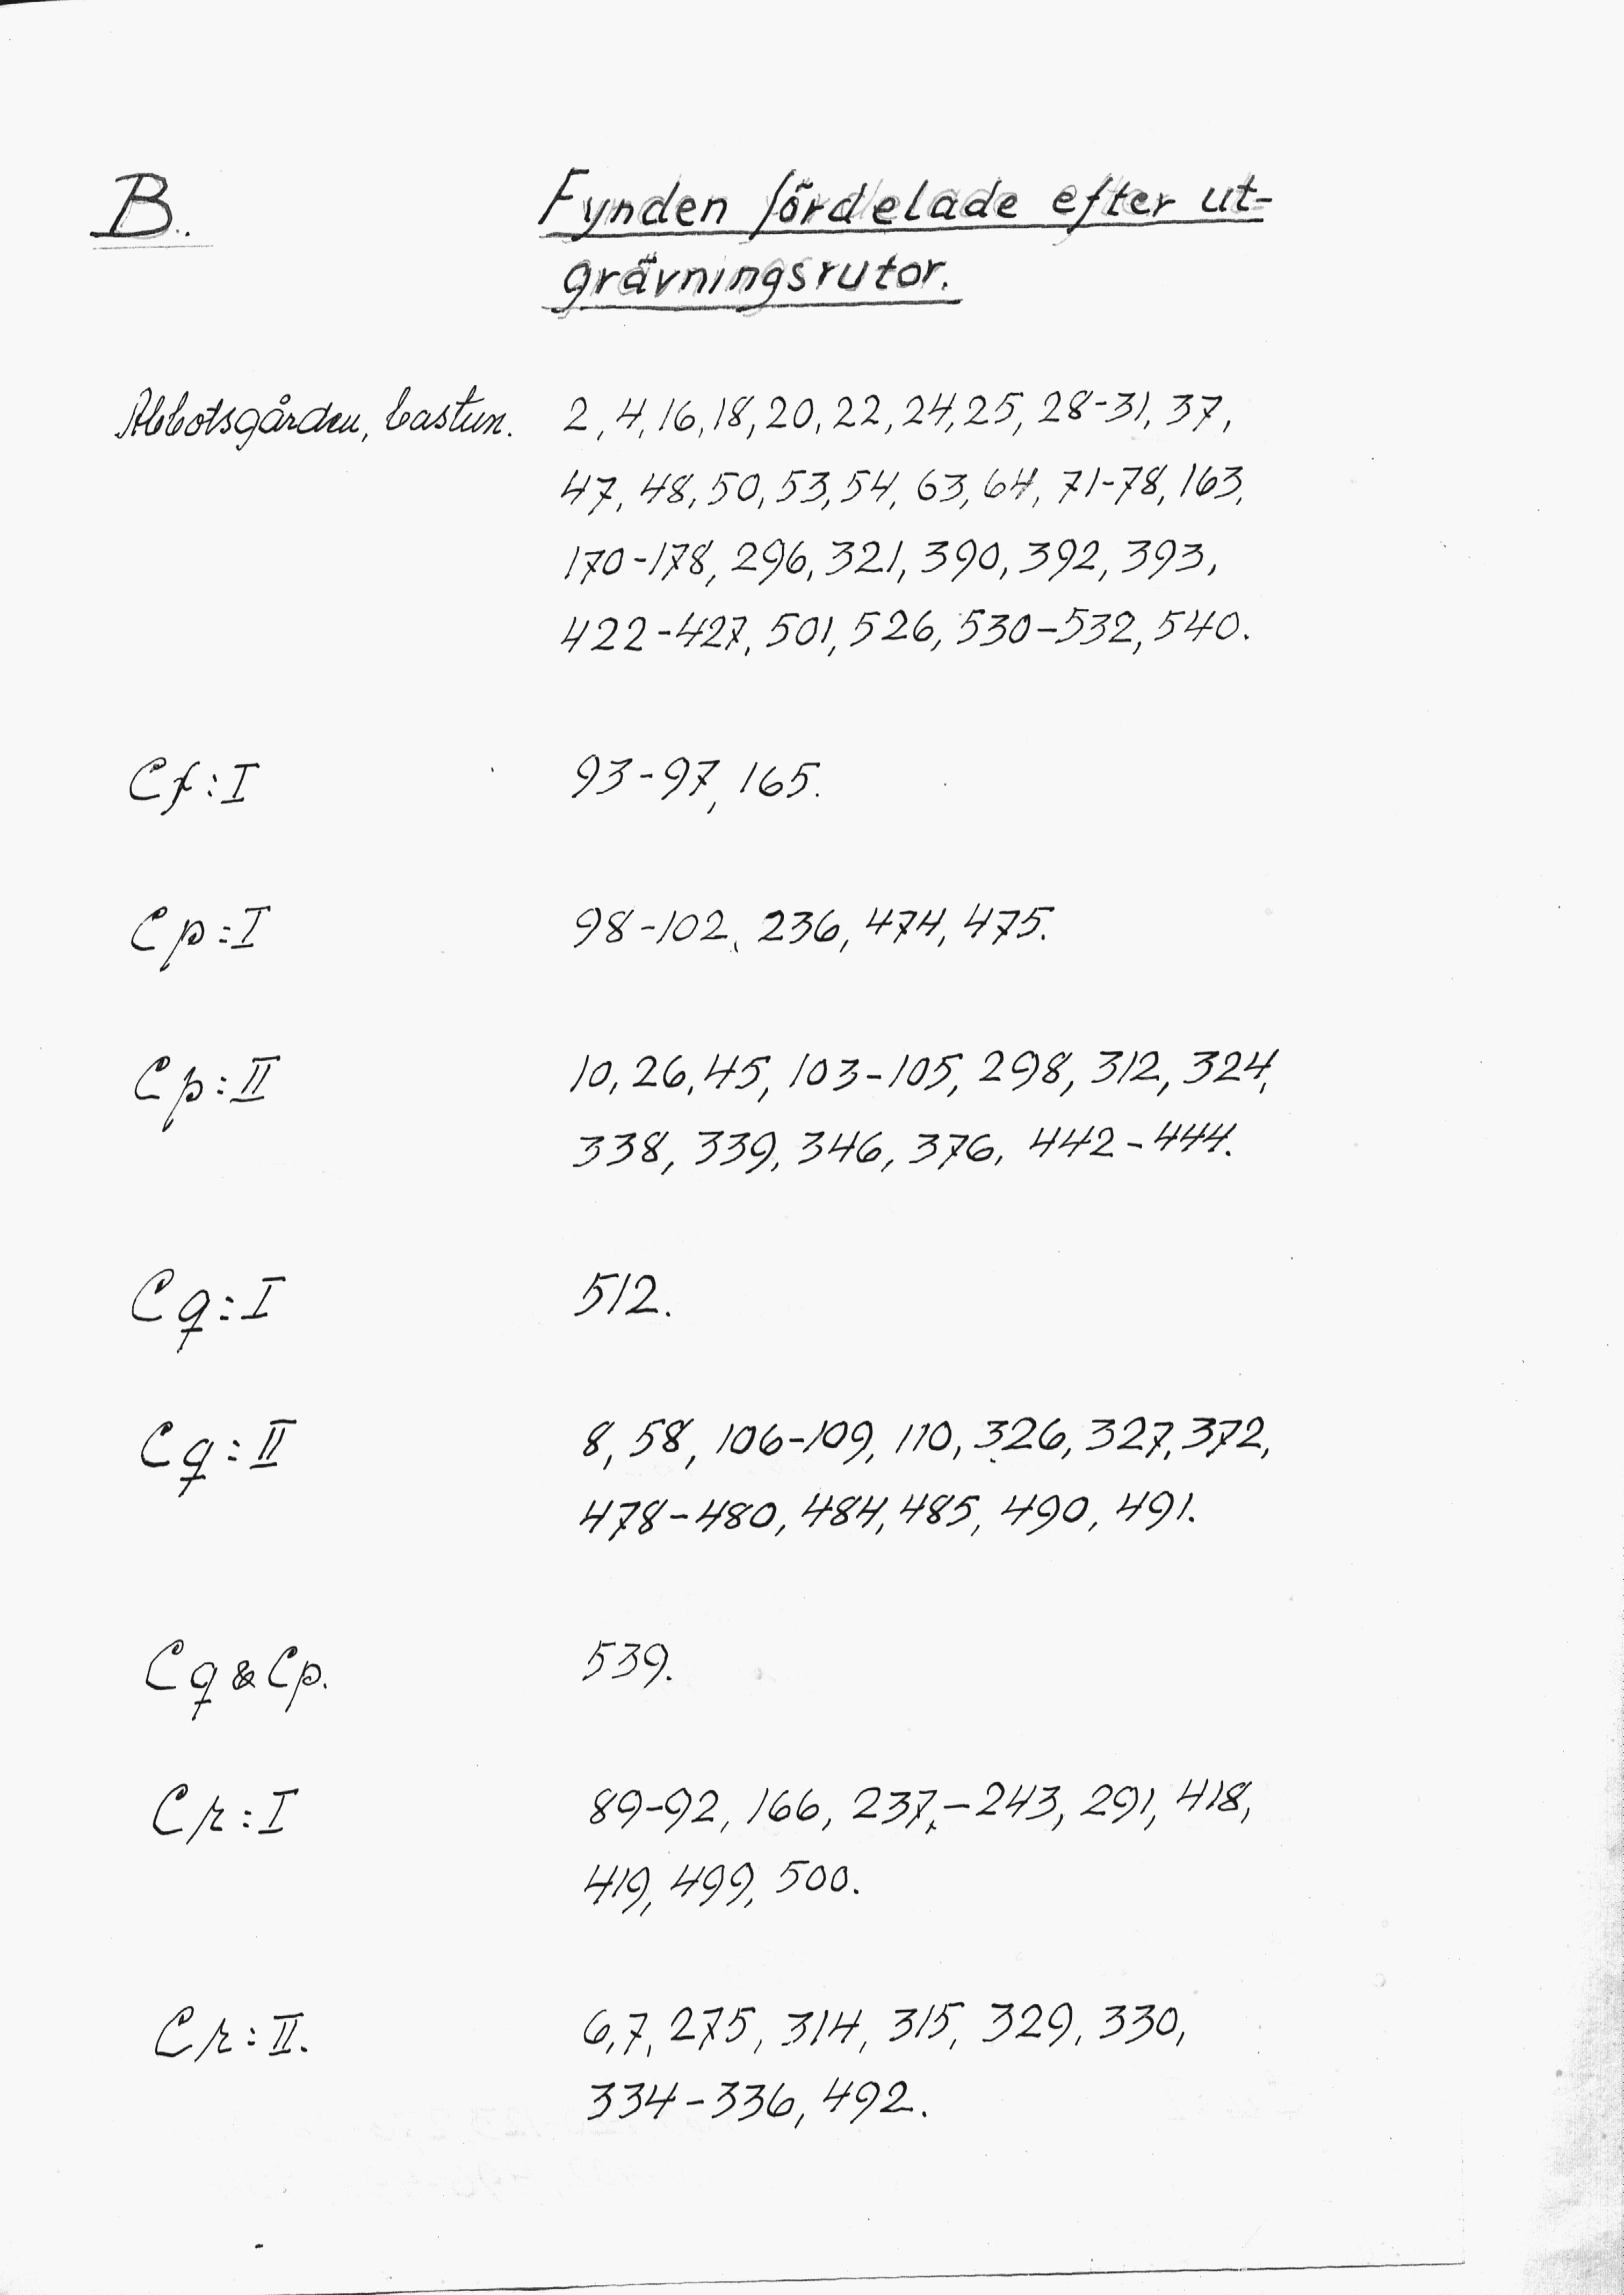 B. Fynden fördelade efter ut-
grävningsrutor.
Abbotsgården, bastun. 2, 4, 16, 18, 20, 22, 24, 25, 28-31, 37,
47, 48, 50, 53, 54, 63, 64, 71-78, 163,
170-178, 296, 321, 390, 392, 393,
422-427, 501, 526, 530-532, 540.
Cf:I 93-97, 165.
Cp:I 98-102, 236, 474, 475.
Cp:II 10, 26, 45, 103-105, 298, 312, 324,
338, 339, 346, 376, 442-444.
Cq:I 512.
Cq:II 8, 58, 106-109, 110, 326, 327, 372,
478-480, 484, 485, 490, 491.
Cq & Cp. 539.
Cr:I 89-92, 166, 237,-243, 291, 418,
419, 499, 500.
Cr:II. 6, 7, 275, 314, 315, 329, 330,
334-336, 492.